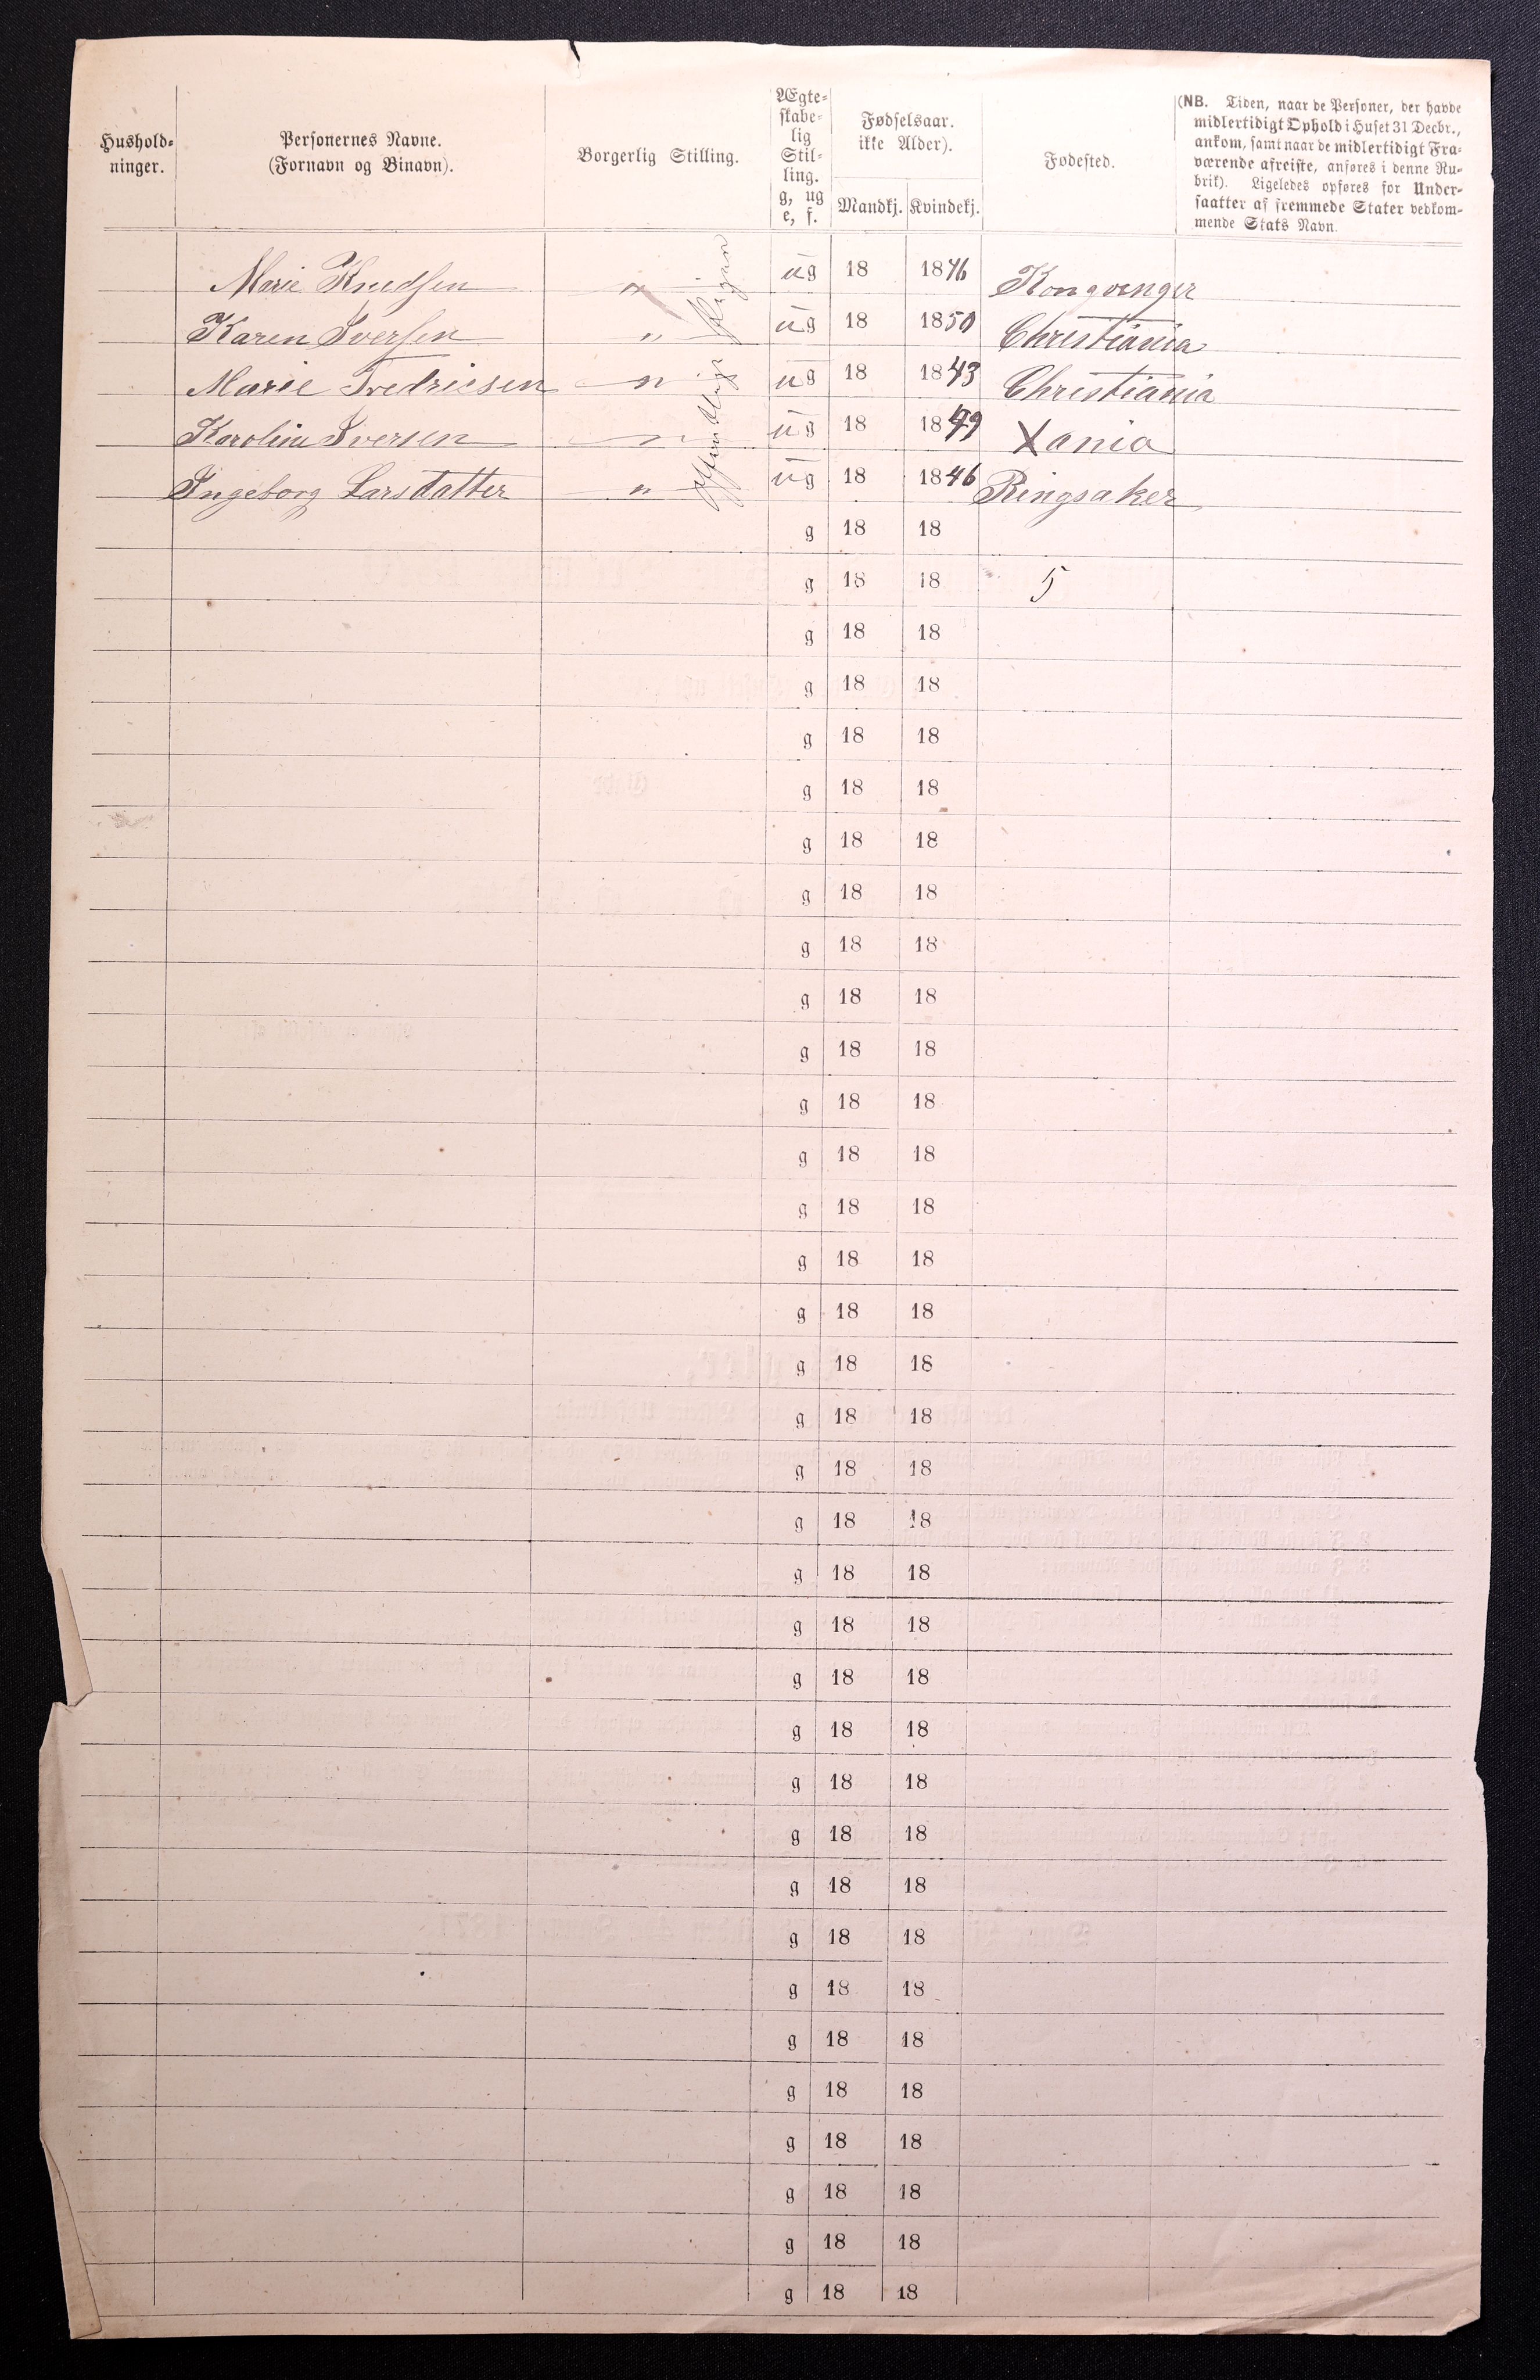 Hushold-
ninger.
Personernes Navne.
(Fornavn og Binavn).
Borgerlig Stilling.
Ægte-
skabe-
lig
Stil-
ling.
g, ug
e, f.
Fødselsaar.
ikke Alder).
Mandkj. Kvindekj.
Fødested.
(NB. Tiden, naar de Personer, der havde
midlertidigt Ophold i Huset 31 Decbr.,
ankom, samt naar de midlertidigt Fra-
værende afreiste, anføres i denne Ru-
brik). Ligeledes opføres for Under-
saatter af fremmede Stater vedkom-
mende Stats Navn.
Marie Knudsen " ug 18 1846 Kongvinger
Karen Iversen " ug 18 1850 Christiania
Marie Fredricsen " ug 18 1843 Christiania
Karoline Iversen " ug 18 1849 Xania
Ingeborg Larsdatter " ug 18 1846 Ringsaker
Offentlige Piger
g 18 18
g 18 18 5
g 18 18
g 18 18
g 18 18
g 18 18
g 18 18
g 18 18
g 18 18
g 18 18
g 18 18
g 18 18
g 18 18
g 18 18
g 18 18
g 18 18
g 18 18
g 18 18
g 18 18
g 18 18
g 18 18
g 18 18
g 18 18
g 18 18
g 18 18
g 18 18
g 18 18
g 18 18
g 18 18
g 18 18
g 18 18
g 18 18
g 18 18
g 18 18
g 18 18